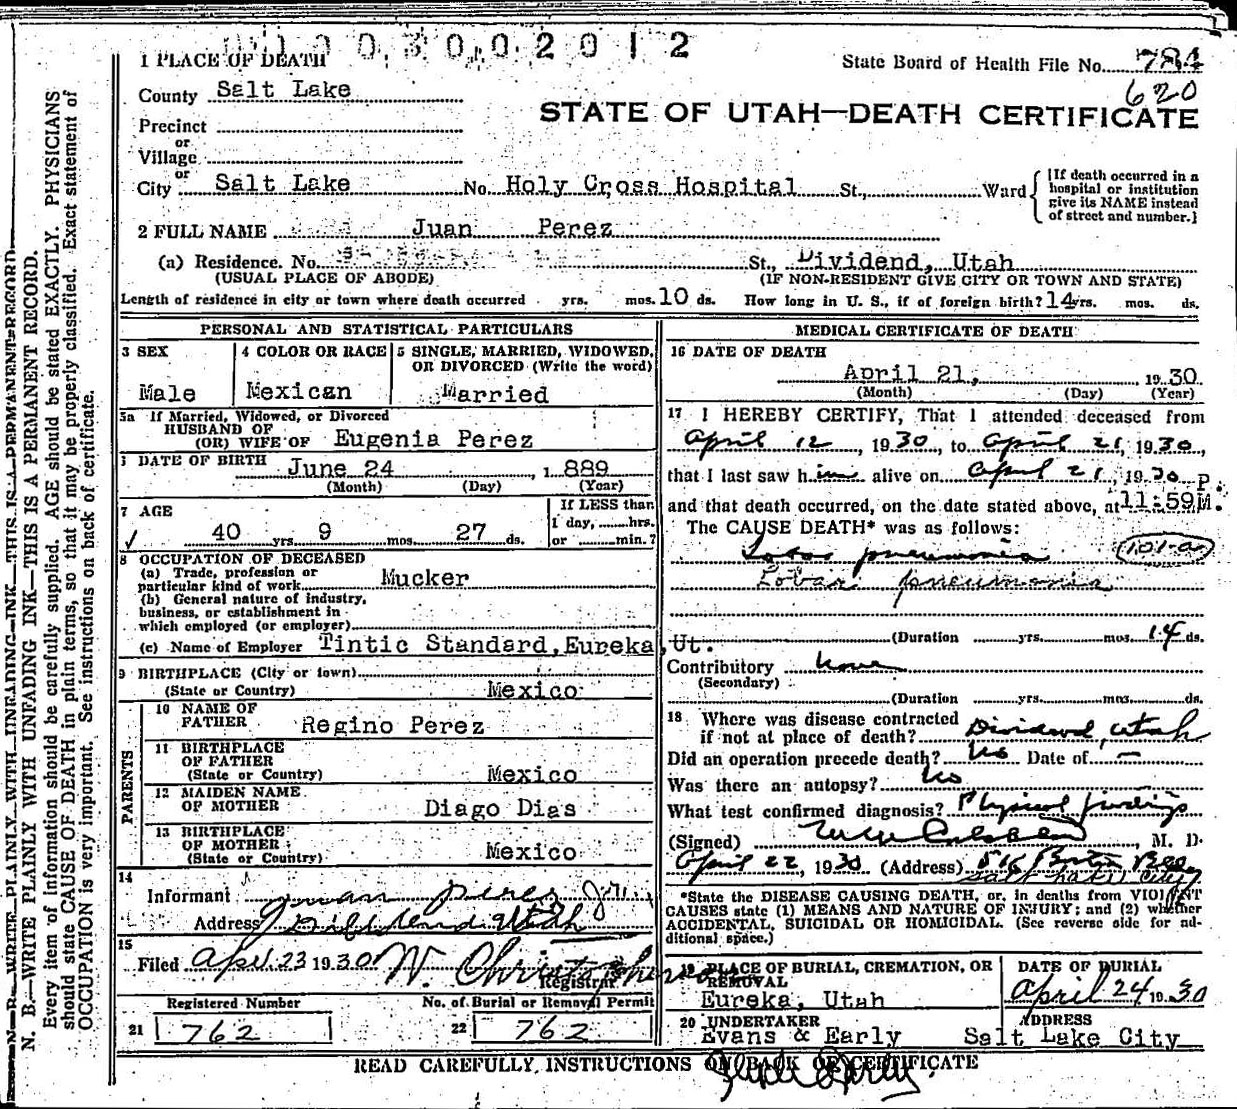 01003002012
1 PLACE OF DEATH
State Board of Health File No. 784
620
County Salt Lake
STATE OF UTAH—DEATH CERTIFICATE
Precinct
or
Village
or
City Salt Lake No. Holy Cross Hospital St., Ward
[If death occurred in a hospital or institution give its NAME instead of street and number.]
2 FULL NAME Juan Perez
(a) Residence. No. St., Dividend, Utah
(USUAL PLACE OF ABODE) (IF NON-RESIDENT GIVE CITY OR TOWN AND STATE)
Length of residence in city or town where death occurred yrs. mos. 10 ds. How long in U. S., if of foreign birth? 14 yrs. mos. ds.
PERSONAL AND STATISTICAL PARTICULARS
3 SEX
Male
4 COLOR OR RACE
Mexican
5 SINGLE, MARRIED, WIDOWED, OR DIVORCED (Write the word)
Married
5a If Married, Widowed, or Divorced
HUSBAND OF
(OR) WIFE OF Eugenia Perez
DATE OF BIRTH June 24, 1889
(Month) (Day) (Year)
7 AGE
40 yrs 9 mos. 27 ds.
If LESS than 1 day, hrs. or min.?
8 OCCUPATION OF DECEASED
(a) Trade, profession or
particular kind of work Mucker
(b) General nature of industry,
business, or establishment in
which employed (or employer)
(c) Name of Employer Tintic Standard, Eureka, Ut.
9 BIRTHPLACE (City or town)
(State or Country) Mexico
PARENTS
10 NAME OF
FATHER Regino Perez
11 BIRTHPLACE
OF FATHER
(State or Country) Mexico
12 MAIDEN NAME
OF MOTHER Diago Dias
13 BIRTHPLACE
OF MOTHER
(State or Country) Mexico
14
Informant Juan Perez Jr.
Address Dividend Utah
15
Filed Apr. 23 1930 W. Christopherson
Registrar
Registered Number No. of Burial or Removal Permit
21 762 22 762
MEDICAL CERTIFICATE OF DEATH
16 DATE OF DEATH
April 21, 1930
(Month) (Day) (Year)
17 I HEREBY CERTIFY, That I attended deceased from
April 12, 1930, to April 21, 1930,
that I last saw him alive on April 21, 1930
and that death occurred, on the date stated above, at 11:59 P. M.
The CAUSE DEATH* was as follows:
Lobar pneumonia 101-a
Lobar pneumonia
(Duration yrs. mos. 14 ds.
Contributory None
(Secondary)
(Duration yrs. mos. ds.
18 Where was disease contracted
if not at place of death? Dividend, Utah
Did an operation precede death? No Date of —
Was there an autopsy? No
What test confirmed diagnosis? Physical findings
(Signed) , M. D.
April 22, 1930 (Address) 516 Boston Bldg
Salt Lake City
*State the DISEASE CAUSING DEATH, or, in deaths from VIOLENT
CAUSES state (1) MEANS AND NATURE OF INJURY; and (2) whether
ACCIDENTAL, SUICIDAL OR HOMICIDAL. (See reverse side for ad-
ditional space.)
19 PLACE OF BURIAL, CREMATION, OR
REMOVAL
Eureka, Utah
DATE OF BURIAL
April 24 1930
20 UNDERTAKER
Evans & Early
ADDRESS
Salt Lake City
READ CAREFULLY, INSTRUCTIONS ON BACK OF CERTIFICATE
N. B. WRITE PLAINLY WITH UNFADING INK THIS IS A PERMANENT RECORD
N. B.—WRITE PLAINLY WITH UNFADING INK—THIS IS A PERMANENT RECORD.
Every item of information should be carefully supplied. AGE should be stated EXACTLY. PHYSICIANS
should state CAUSE OF DEATH in plain terms, so that it may be properly classified. Exact statement of
OCCUPATION is very important. See instructions on back of certificate.